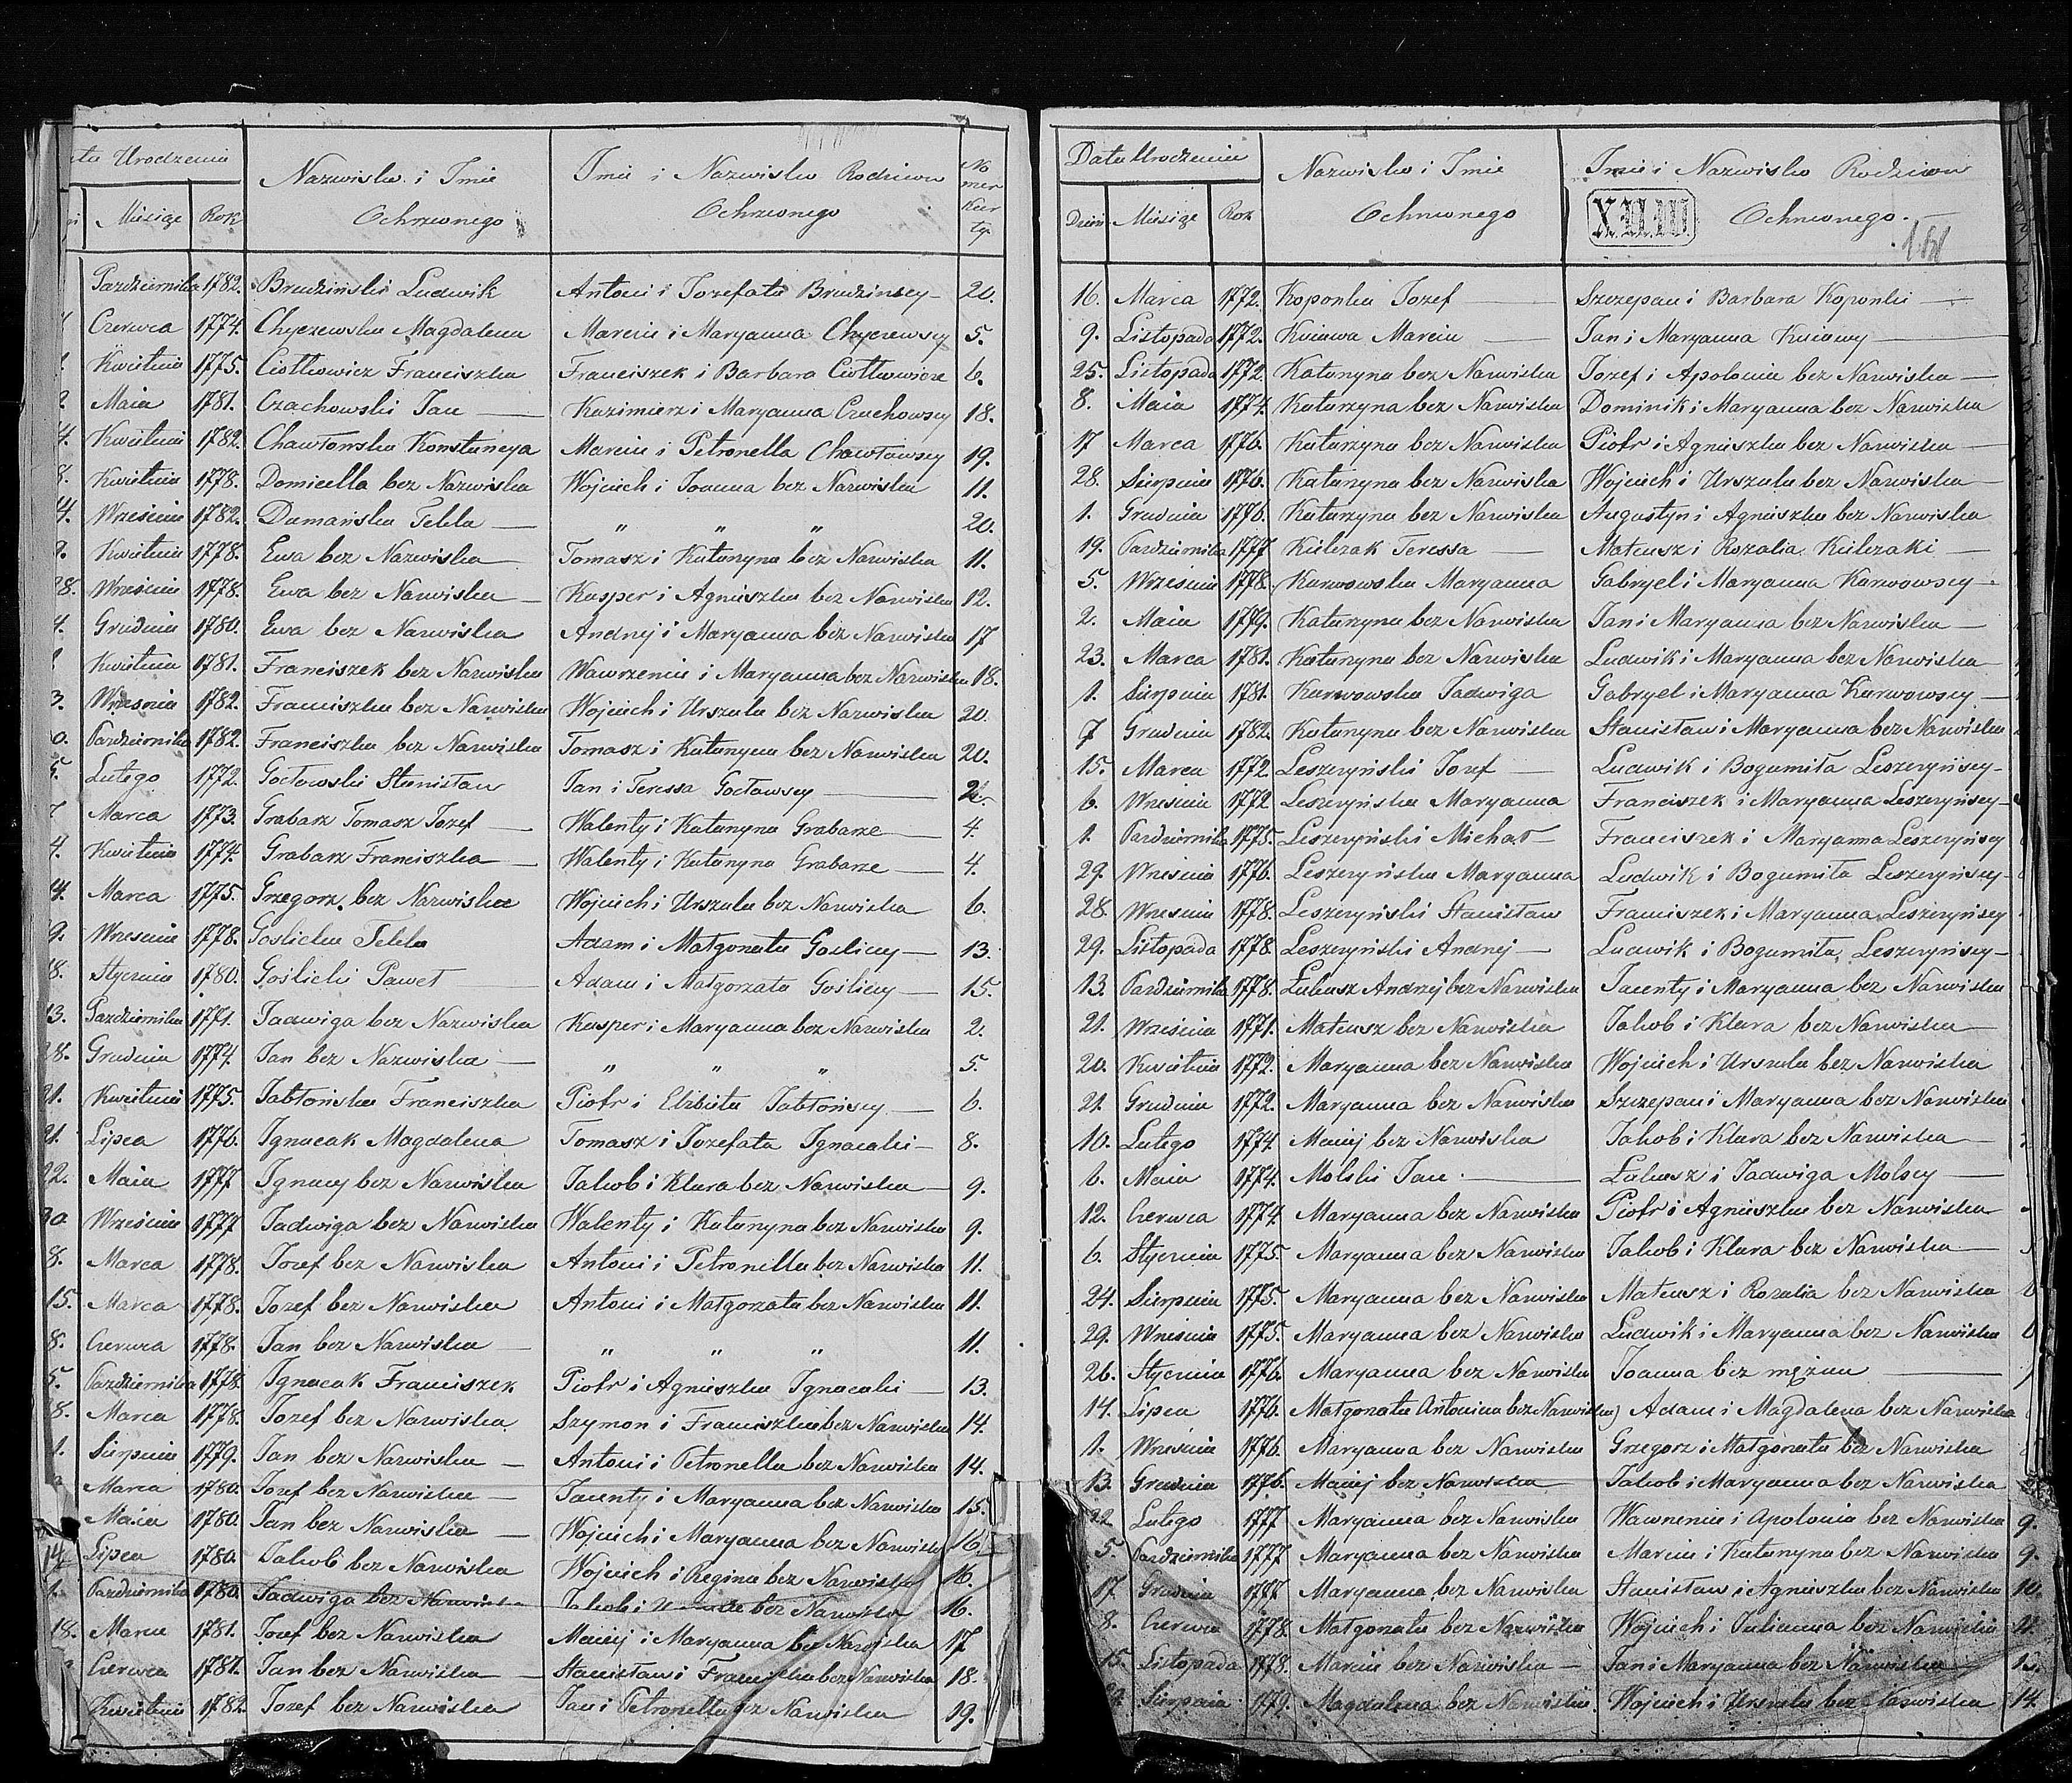 ta Urodzenia
Nazwisko i Imie Ochrzconego
Imie i Nazwisko Rodziców Ochrzconego
No mer Kar ty.
Miesiąc Rok
Pazdziernika 1782. Brudziński Ludwik Antoni i Jozefata Brudzinscy 20.
Czerwca 1774. Chyczewska Magdalena Marcin i Maryanna Chyczewscy 5.
Kwietnia 1775. Ciołkowicz Franciszka Franciszek i Barbara Ciołkowicze 6.
Maia 1781. Czachowski Jan Kazimierz i Maryanna Czachowscy 18.
4. Kwietnia 1782. Chawłowska Konstancya Marcin i Petronella Chawłowscy 19.
8. Kwietnia 1778. Domicella bez Nazwiska Wojciech i Joanna bez Nazwiska 11.
4. Września 1782. Damańska Tekla " " " 20.
Kwietnia 1778. Ewa bez Nazwiska Tomasz i Katarzyna bez Nazwiska 11.
28. Września 1778. Ewa bez Nazwiska Kasper i Agnieszka bez Nazwiska 12.
4. Grudnia 1780. Ewa bez Nazwiska Andrzej i Maryanna bez Nazwiska 17
Kwietnia 1781. Franciszek bez Nazwiska Wawrzeniec i Maryanna bez Nazwiska 18.
3. Września 1782. Franciszka bez Nazwiska Wojciech i Urszula bez Nazwiska 20.
0. Pazdziernika 1782. Franciszka bez Nazwiska Tomasz i Katarzyna bez Nazwiska 20.
5. Lutego 1772. Gocłowski Stanisław Jan i Teressa Gocławscy 2.
7 Marca 1773. Grabarz Tomasz Jozef Walenty i Katarzyna Grabarze 4.
4. Kwietnia 1774. Grabarz Franciszka Walenty i Katarzyna Grabarze 4.
4. Marca 1775. Grzegorz bez Nazwiska Wojciech i Urszula bez Nazwiska 6.
9. Września 1778. Goslicka Tekla Adam i Małgorzata Goslicey 13.
8. Stycznia 1780. Goślicki Paweł Adam i Małgorzata Goślicey 15.
13. Pazdziernika 1771. Jadwiga bez Nazwiska Kasper i Maryanna bez Nazwiska 2.
28. Grudnia 1774. Jan bez Nazwiska " " " 5.
21. Kwietnia 1775. Jabłońska Franciszka Piotr i Elżbieta Jabłońscy 6.
21. Lipca 1776. Ignacak Magdalena Tomasz i Jozefata Ignacaki 8.
22. Maia 1777 Ignacy bez Nazwiska Jakob i Klara bez Nazwiska 9.
30. Września 1777 Jadwiga bez Nazwiska Walenty i Katarzyna bez Nazwiska 9.
8. Marca 1778. Jozef bez Nazwiska Antoni i Petronella bez Nazwiska 11.
15. Marca 1778. Jozef bez Nazwiska Antoni i Małgorzata bez Nazwiska 11.
8. Czerwca 1778. Jan bez Nazwiska " " " 11.
5. Pazdziernika 1778. Ignacak Franciszek Piotr i Agnieszka Ignacaki 13.
28. Marca 1778. Jozef bez Nazwiska Szymon i Franciszka bez Nazwiska 14.
1. Sierpnia 1779. Jan bez Nazwiska Antoni i Petronella bez Nazwiska 14.
Marca 1780. Jozef bez Nazwiska Jacenty i Maryanna bez Nazwiska 15.
Maia 1780. Jan bez Nazwiska Wojciech i Maryanna bez Nazwiska 16.
14. Lipca 1780. Jakob bez Nazwiska Wojciech i Regina bez Nazwiska 16.
1. Pazdziernika 1780. Jadwiga bez Nazwiska Jakob i bez Nazwiska 16.
18. Marca 1781. Jozef bez Nazwiska Maciej i Maryanna bez Nazwiska 17
Czerwca 1781. Jan bez Nazwiska Stanisław i Franciszka bez Nazwiska 18.
Kwietnia 1782. Jozef bez Nazwiska Jan i Petronella bez Nazwiska 19.
Data Urodzenia
Nazwisko i Imie Ochrzconego
Imie i Nazwisko Rodziców Ochrzconego.
Dzień Miesiąc Rok
16. Marca 1772. Koponka Jozef Szczepan i Barbara Koponki
9. Listopada 1772. Kuiawa Marcin Jan i Maryanna Kuiawy
25. Listopada 1772. Katarzyna bez Nazwiska Jozef i Apolonia bez Nazwiska
8. Maia 1774. Katarzyna bez Nazwiska Dominik i Maryanna bez Nazwiska
17 Marca 1776. Katarzyna bez Nazwiska Piotr i Agnieszka bez Nazwiska
28. Sierpnia 1776. Katarzyna bez Nazwiska Wojciech i Urszula bez Nazwiska
1. Grudnia 1776. Katarzyna bez Nazwiska Augustyn i Agnieszka bez Nazwiska
19. Pazdziernika 1777. Kulczak Teressa Mateusz i Rozalia Kulczaki
5. Września 1778. Karwowska Maryanna Gabryel i Maryanna Karwowscy
2. Maia 1779. Katarzyna bez Nazwiska Jan i Maryanna bez Nazwiska
23. Marca 1781. Katarzyna bez Nazwiska Ludwik i Maryanna bez Nazwiska
1. Sierpnia 1781. Karwowska Jadwiga Gabryel i Maryanna Karwowscy
7 Grudnia 1782. Katarzyna bez Nazwiska Stanisław i Maryanna bez Nazwiska
15. Marca 1772. Leszczyński Jozef Ludwik i Bogumiła Leszczyńscy
6. Września 1772. Leszczyńska Maryanna Franciszek i Maryanna Leszczyńscy
1. Pazdziernika 1775. Leszczyński Michał Franciszek i Maryanna Leszczyńscy
29. Września 1776. Leszczyńska Maryanna Ludwik i Bogumiła Leszczyńscy
28. Września 1778. Leszczyński Stanisław Franciszek i Maryanna Leszczyńscy
29. Listopada 1778. Leszczyński Andrzej Ludwik i Bogumiła Leszczyńscy
13. Pazdziernika 1778. Łukasz Andrzej bez Nazwiska Jacenty i Maryanna bez Nazwiska
21. Września 1771. Mateusz bez Nazwiska Jakob i Klara bez Nazwiska
20. Kwietnia 1772. Maryanna bez Nazwiska Wojciech i Urszula bez Nazwiska
21. Grudnia 1772. Maryanna bez Nazwiska Szczepan i Maryanna bez Nazwiska
10. Lutego 1774. Maciej bez Nazwiska Jakob i Klara bez Nazwiska
6. Maia 1774. Molski Jan Łukasz i Jadwiga Molscy
12. Czerwca 1774. Maryanna bez Nazwiska Piotr i Agnieszka bez Nazwiska
6. Stycznia 1775. Maryanna bez Nazwiska Jakob i Klara bez Nazwiska
24. Sierpnia 1775. Maryanna bez Nazwiska Mateusz i Rozalia bez Nazwiska
29. Września 1775. Maryanna bez Nazwiska Ludwik i Maryanna bez Nazwiska
26. Stycznia 1776. Maryanna bez Nazwiska Joanna bez mężna
14. Lipca 1776. Małgorzata Antonina bez Nazwiska Adam i Magdalena bez Nazwiska
1. Września 1776. Maryanna bez Nazwiska Grzegorz i Małgorzata bez Nazwiska
13. Grudnia 1776. Maciej bez Nazwiska Jakob i Maryanna bez Nazwiska
22 Lutego 1777 Maryanna bez Nazwiska Wawrzeniec i Apolonia bez Nazwiska 9.
5. Pazdziernika 1777 Maryanna bez Nazwiska Marcin i Katarzyna bez Nazwiska 9.
17 Grudnia 1777 Maryanna bez Nazwiska Stanisław i Agnieszka bez Nazwiska 10.
8. Czerwca 1778. Małgorzata bez Nazwiska Wojciech i Julianna bez Nazwiska 11.
15. Listopada 1778. Marcin bez Nazwiska Jan i Maryanna bez Nazwiska 13.
Sierpnia 1779. Magdalena bez Nazwiska Wojciech i Urszula bez Nazwiska 14.